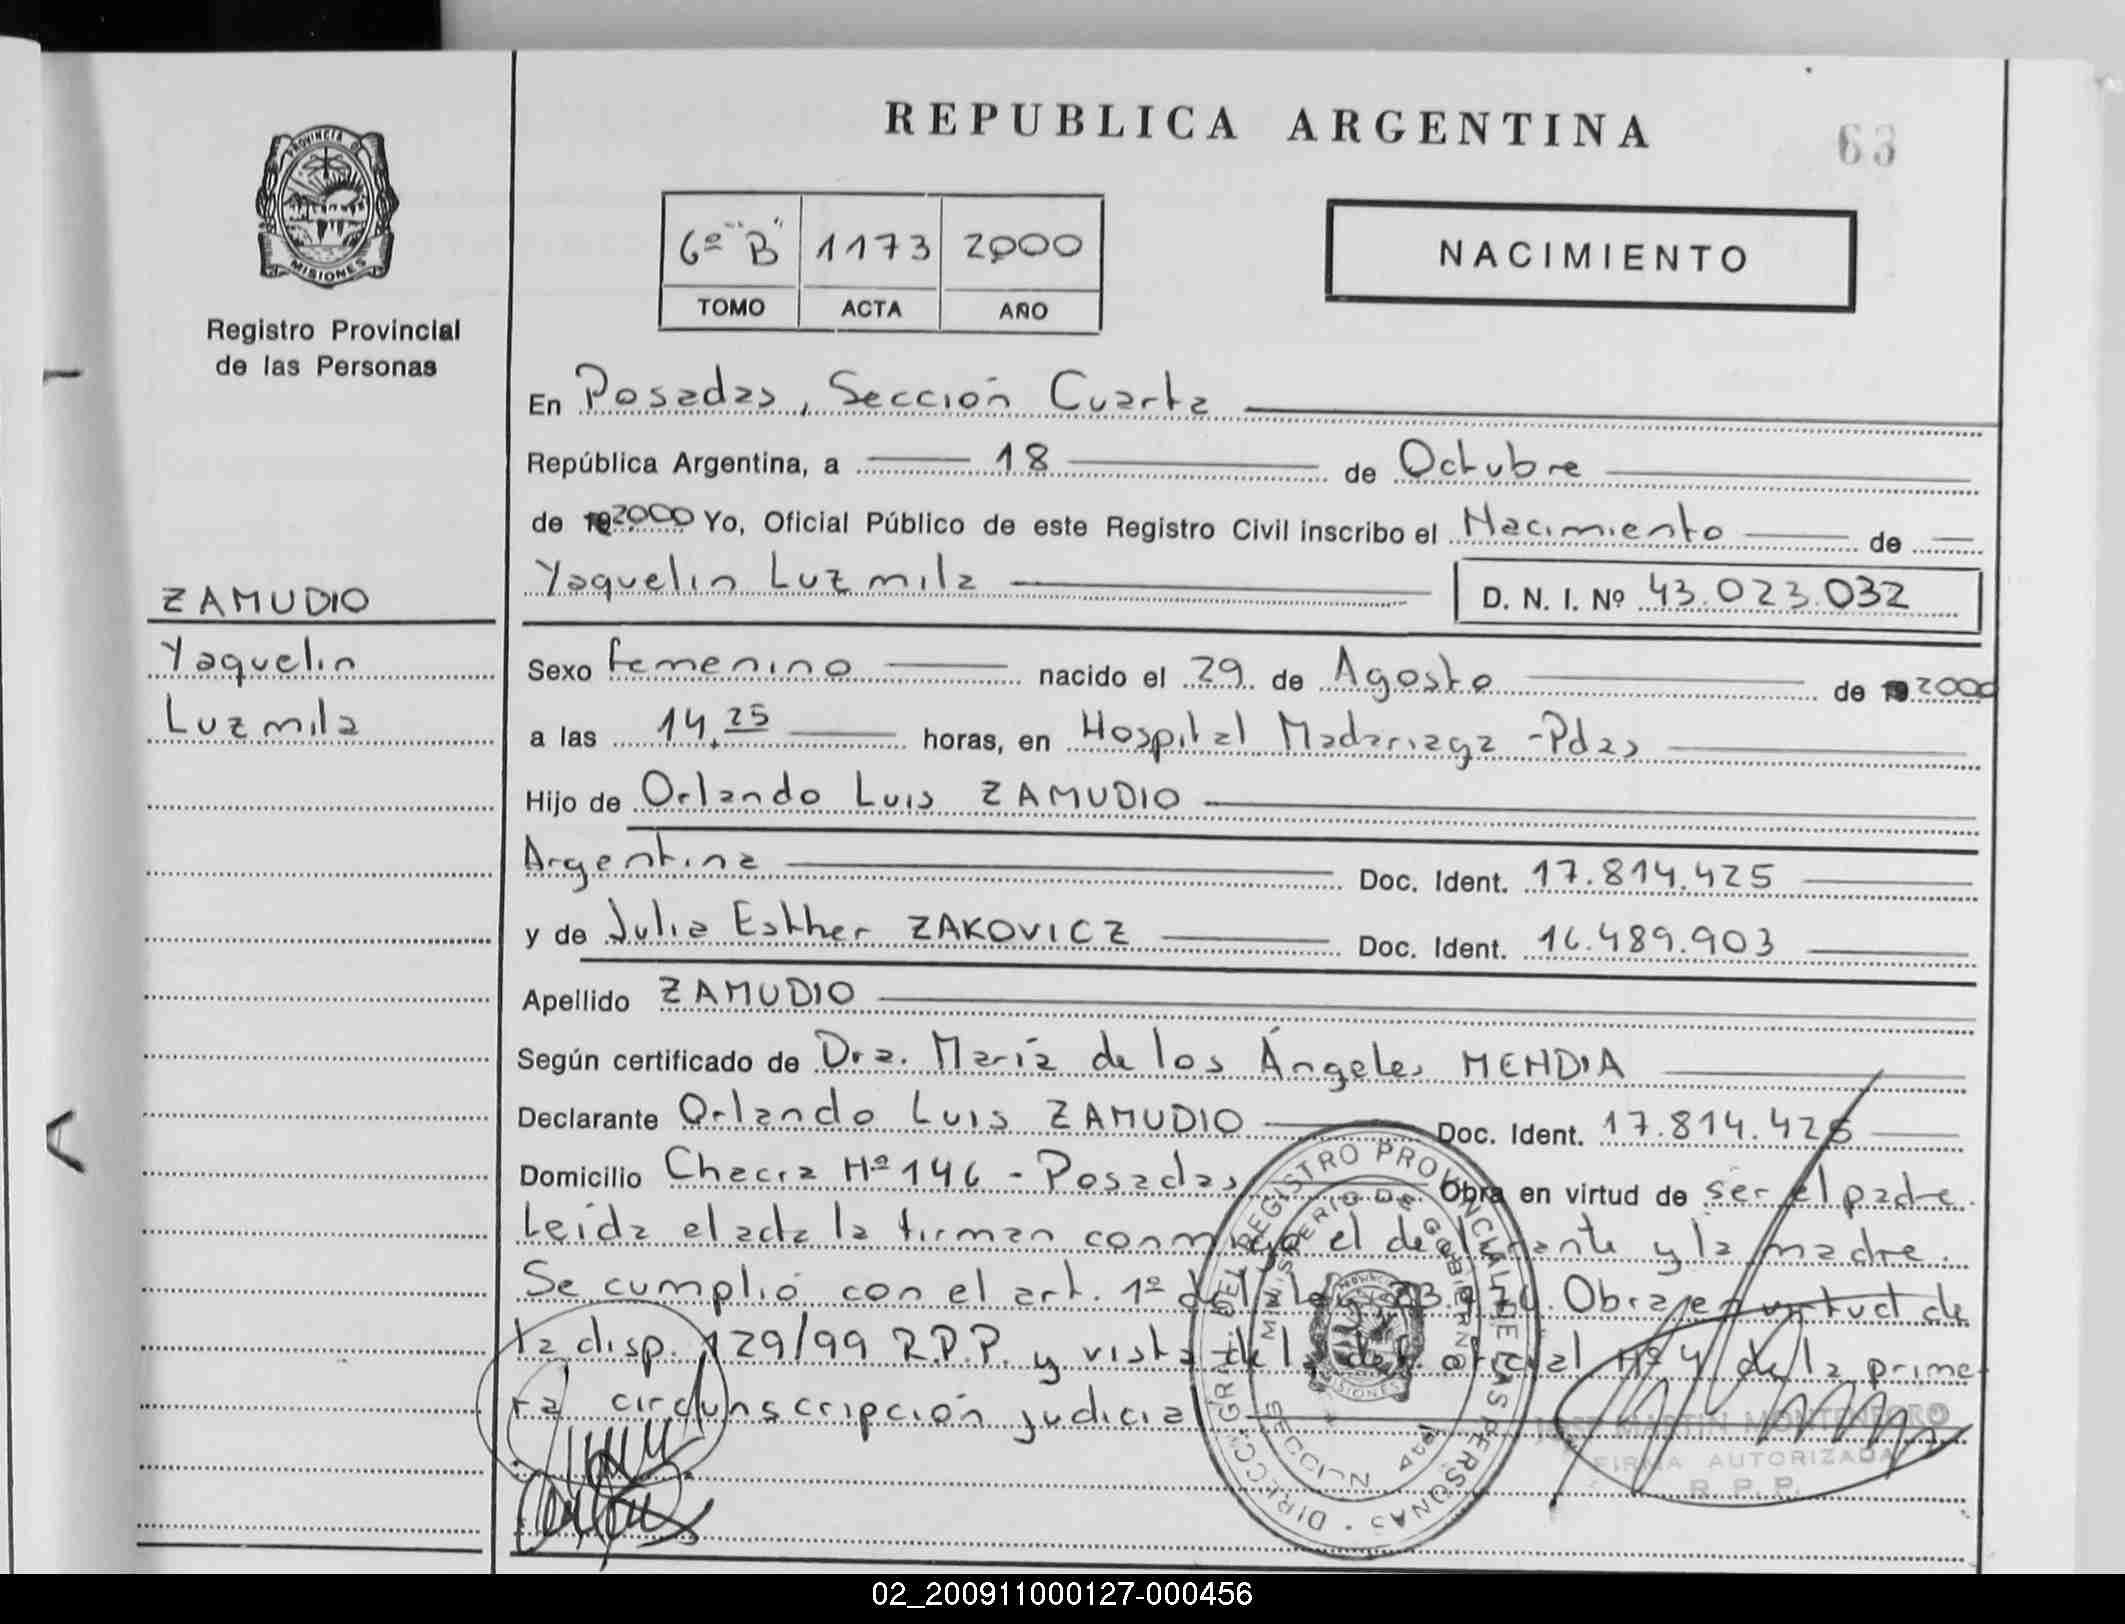 REPUBLICA ARGENTINA
63
PROVINCIA DE
MISIONES
Registro Provincial
de las Personas
6º "B" 1173 2000
TOMO ACTA AÑO
NACIMIENTO
En Posadas, Sección Cuarta
República Argentina, a 18 de Octubre
de 192000 Yo, Oficial Público de este Registro Civil inscribo el Nacimiento de
Yaquelin Luzmila D. N. I. Nº 43.023.032
ZAMUDIO
Yaquelin
Luzmila
Sexo femenino nacido el 29 de Agosto de 192000
a las 14,25 horas, en Hospital Madariaga - Pdas
Hijo de Orlando Luis ZAMUDIO
Argentina Doc. Ident. 17.814.425
y de Julia Esther ZAKOVICZ Doc. Ident. 16.489.903
Apellido ZAMUDIO
Según certificado de Dra. María de los Ángeles MENDIA
Declarante Orlando Luis ZAMUDIO Doc. Ident. 17.814.425
Domicilio Chacra Nº 146 - Posadas Obra en virtud de ser el padre.
Leída el acta la firman conmigo el declarante y la madre.
Se cumplió con el art. 1º de la ley Obra en virtud de
la disp. 129/99 R.P.P. y vista de la def. oficial Nº 4 de la prime-
ra circunscripción judicial
DIRECC. GRAL. DEL REGISTRO PROVINCIAL DE LAS PERSONAS
MINISTERIO DE GOBIERNO
SECCION 4ta
MISIONES
JOSE MARTIN MONTENEGRO
FIRMA AUTORIZADA
R. P. P.
02_200911000127-000456